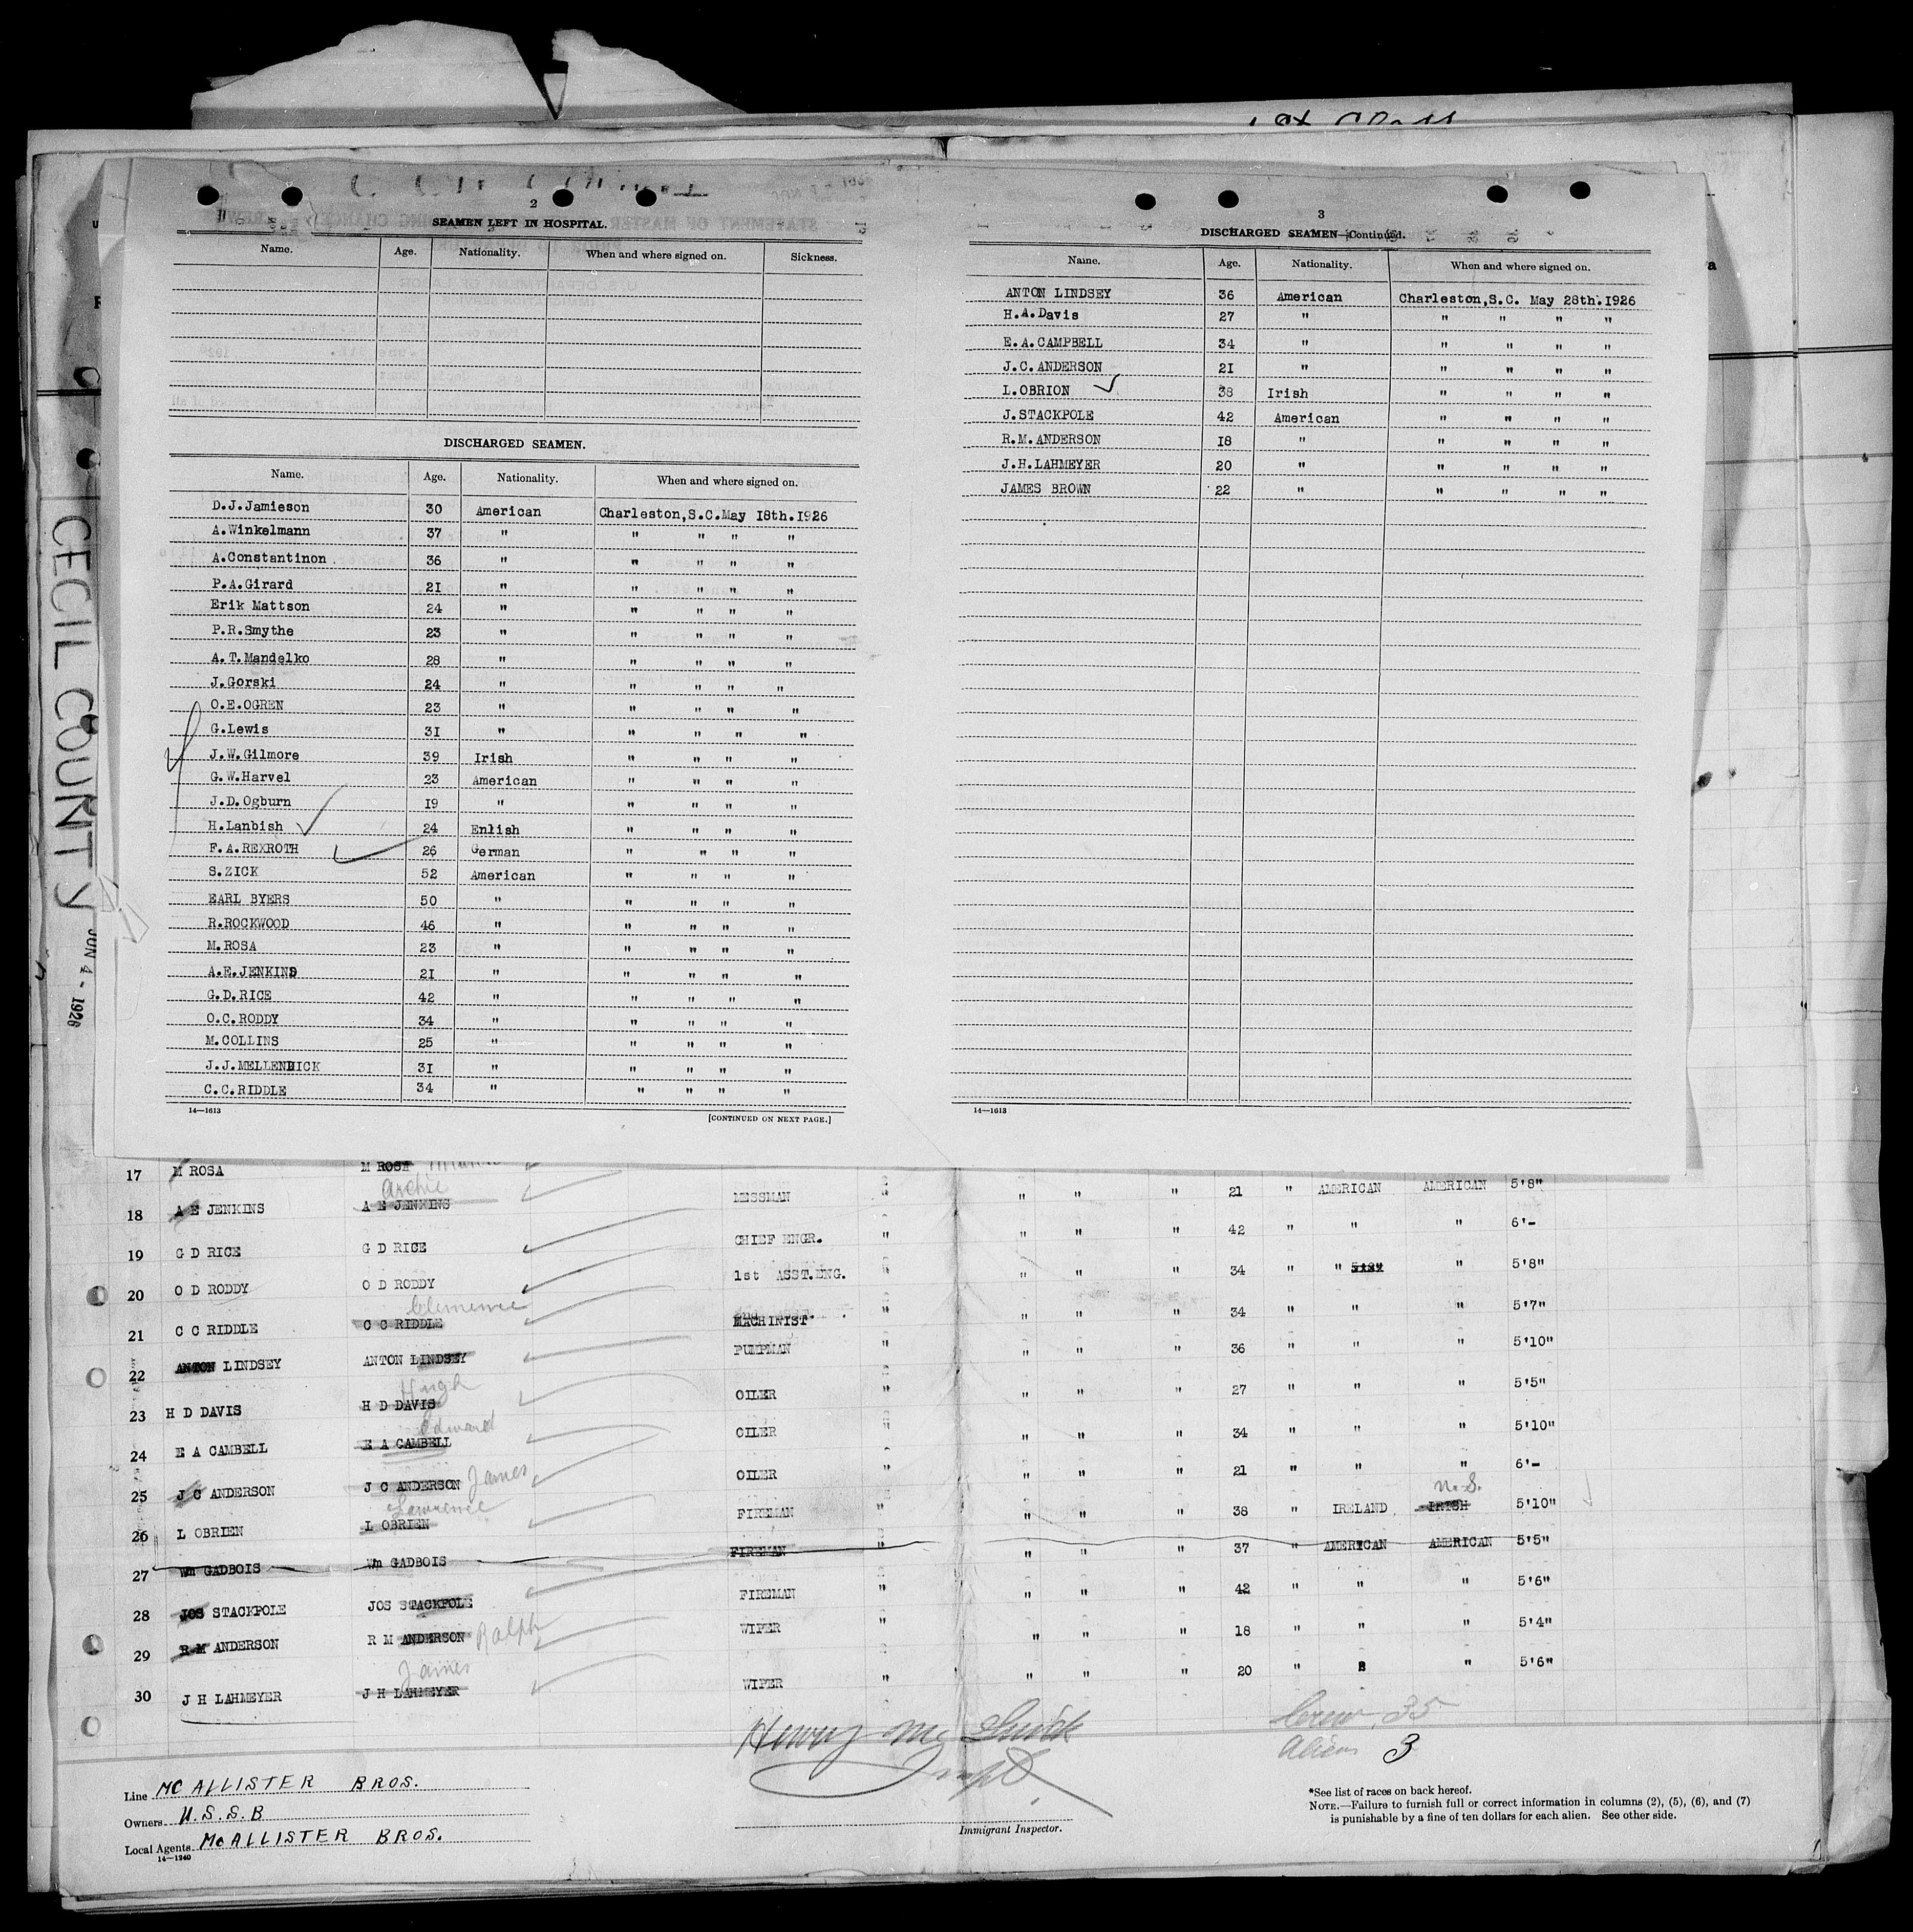 2
SEAMEN LEFT IN HOSPITAL.
Name. Age. Nationality. When and where signed on. Sickness.
DISCHARGED SEAMEN.
Name. Age. Nationality. When and where signed on.
D.J.Jamieson 30 American Charleston,S.C.May 18th.1926
A.Winkelmann 37 " " " " "
A.Constantinon 36 " " " " "
P.A.Girard 21 " " " " "
Erik Mattson 24 " " " " "
P.R.Smythe 23 " " " " "
A.T.Mandelko 28 " " " " "
J.Gorski 24 " " " " "
O.E.OGREN 23 " " " " "
G.Lewis 31 " " " " "
J.W.Gilmore 39 Irish " " " "
G.W.Harvel 23 American " " " "
J.D.Ogburn 19 " " " " "
H.Lanbish 24 Enlish " " " "
F.A.REXROTH 26 German " " " "
S.ZICK 52 American " " " "
EARL BYERS 50 " " " " "
R.ROCKWOOD 46 " " " " "
M.ROSA 23 " " " " "
A.E.JENKINS 21 " " " " "
G.D.RICE 42 " " " " "
O.C.RODDY 34 " " " " "
M.COLLINS 25 " " " " "
J.J.MELLENHICK 31 " " " " "
C.C.RIDDLE 34 " " " " "
14—1613 [CONTINUED ON NEXT PAGE.]
3
DISCHARGED SEAMEN—Continued.
Name. Age. Nationality. When and where signed on.
ANTON LINDSEY 36 American Charleston,S.C. May 28th.1926
H.A.Davis 27 " " " " "
E.A.CAMPBELL 34 " " " " "
J.C.ANDERSON 21 " " " " "
L.OBRION 38 Irish " " " "
J.STACKPOLE 42 American " " " "
R.M.ANDERSON 18 " " " " "
J.H.LAHMEYER 20 " " " " "
JAMES BROWN 22 " " " " "
14—1613
CECIL COUNTY JUN 4 - 1926
17 M ROSA M ROSA
Archie
18 A E JENKINS A E JENKINS MESSMAN " " " " 21 " AMERICAN AMERICAN 5'8"
19 G D RICE G D RICE CHIEF ENGR. " " " " 42 " " " 6'-
20 O D RODDY O D RODDY 1st ASST.ENG. " " " " 34 " " " 5'8"
Clemence
21 C C RIDDLE C C RIDDLE MACHINIST. " " " " 34 " " " 5'7"
22 ANTON LINDSEY ANTON LINDSEY PUMPMAN " " " " 36 " " " 5'10"
Hugh
23 H D DAVIS H D DAVIS OILER " " " " 27 " " " 5'5"
Edward
24 E A CAMBELL E A CAMBELL OILER " " " " 34 " " " 5'10"
25 J C ANDERSON J C ANDERSON James OILER " " " " 21 " " " 6'-
Lawrence N.S.
26 L OBRIEN L OBRIEN FIREMAN " " " " 38 " IRELAND IRISH 5'10"
27 Wm GADBOIS Wm GADBOIS FIREMAN " " " 37 " AMERICAN AMERICAN 5'5"
28 JOS STACKPOLE JOS STACKPOLE FIREMAN " " " " 42 " " " 5'6"
29 R M ANDERSON R M ANDERSON Ralph WIPER " " " " 18 " " " 5'4"
James
30 J H LAHMEYER J H LAHMEYER WIPER " " " " 20 " " " 5'6"
Crew 35
Aliens 3
Line MC ALLISTER BROS.
Owners U.S.S.B
Local Agents McALLISTER BROS.
14—1240
Immigrant Inspector.
*See list of races on back hereof.
NOTE.—Failure to furnish full or correct information in columns (2), (5), (6), and (7)
is punishable by a fine of ten dollars for each alien. See other side.